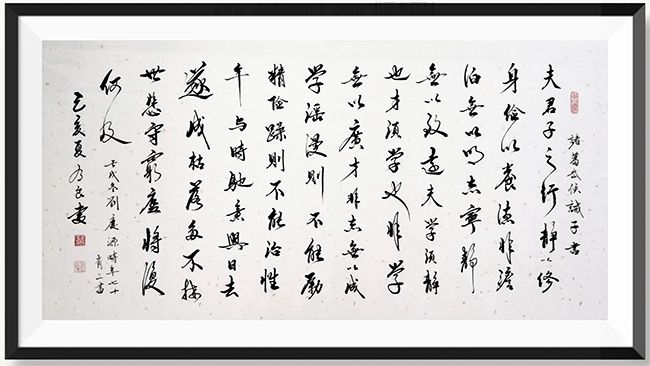 諸葛武侯誡子書
夫君子之行靜以修
身儉以養德非澹
泊無以明志寧靜
無以致遠夫學須靜
也才須學也非學
無以廣才非志無以成
学滛漫則不能勵
精險躁則不能治性
年与時馳意與日去
遂成枯落多不接
世悲守窮廬將復
何及
劉慶源時年七十
有二書
己亥夏
書